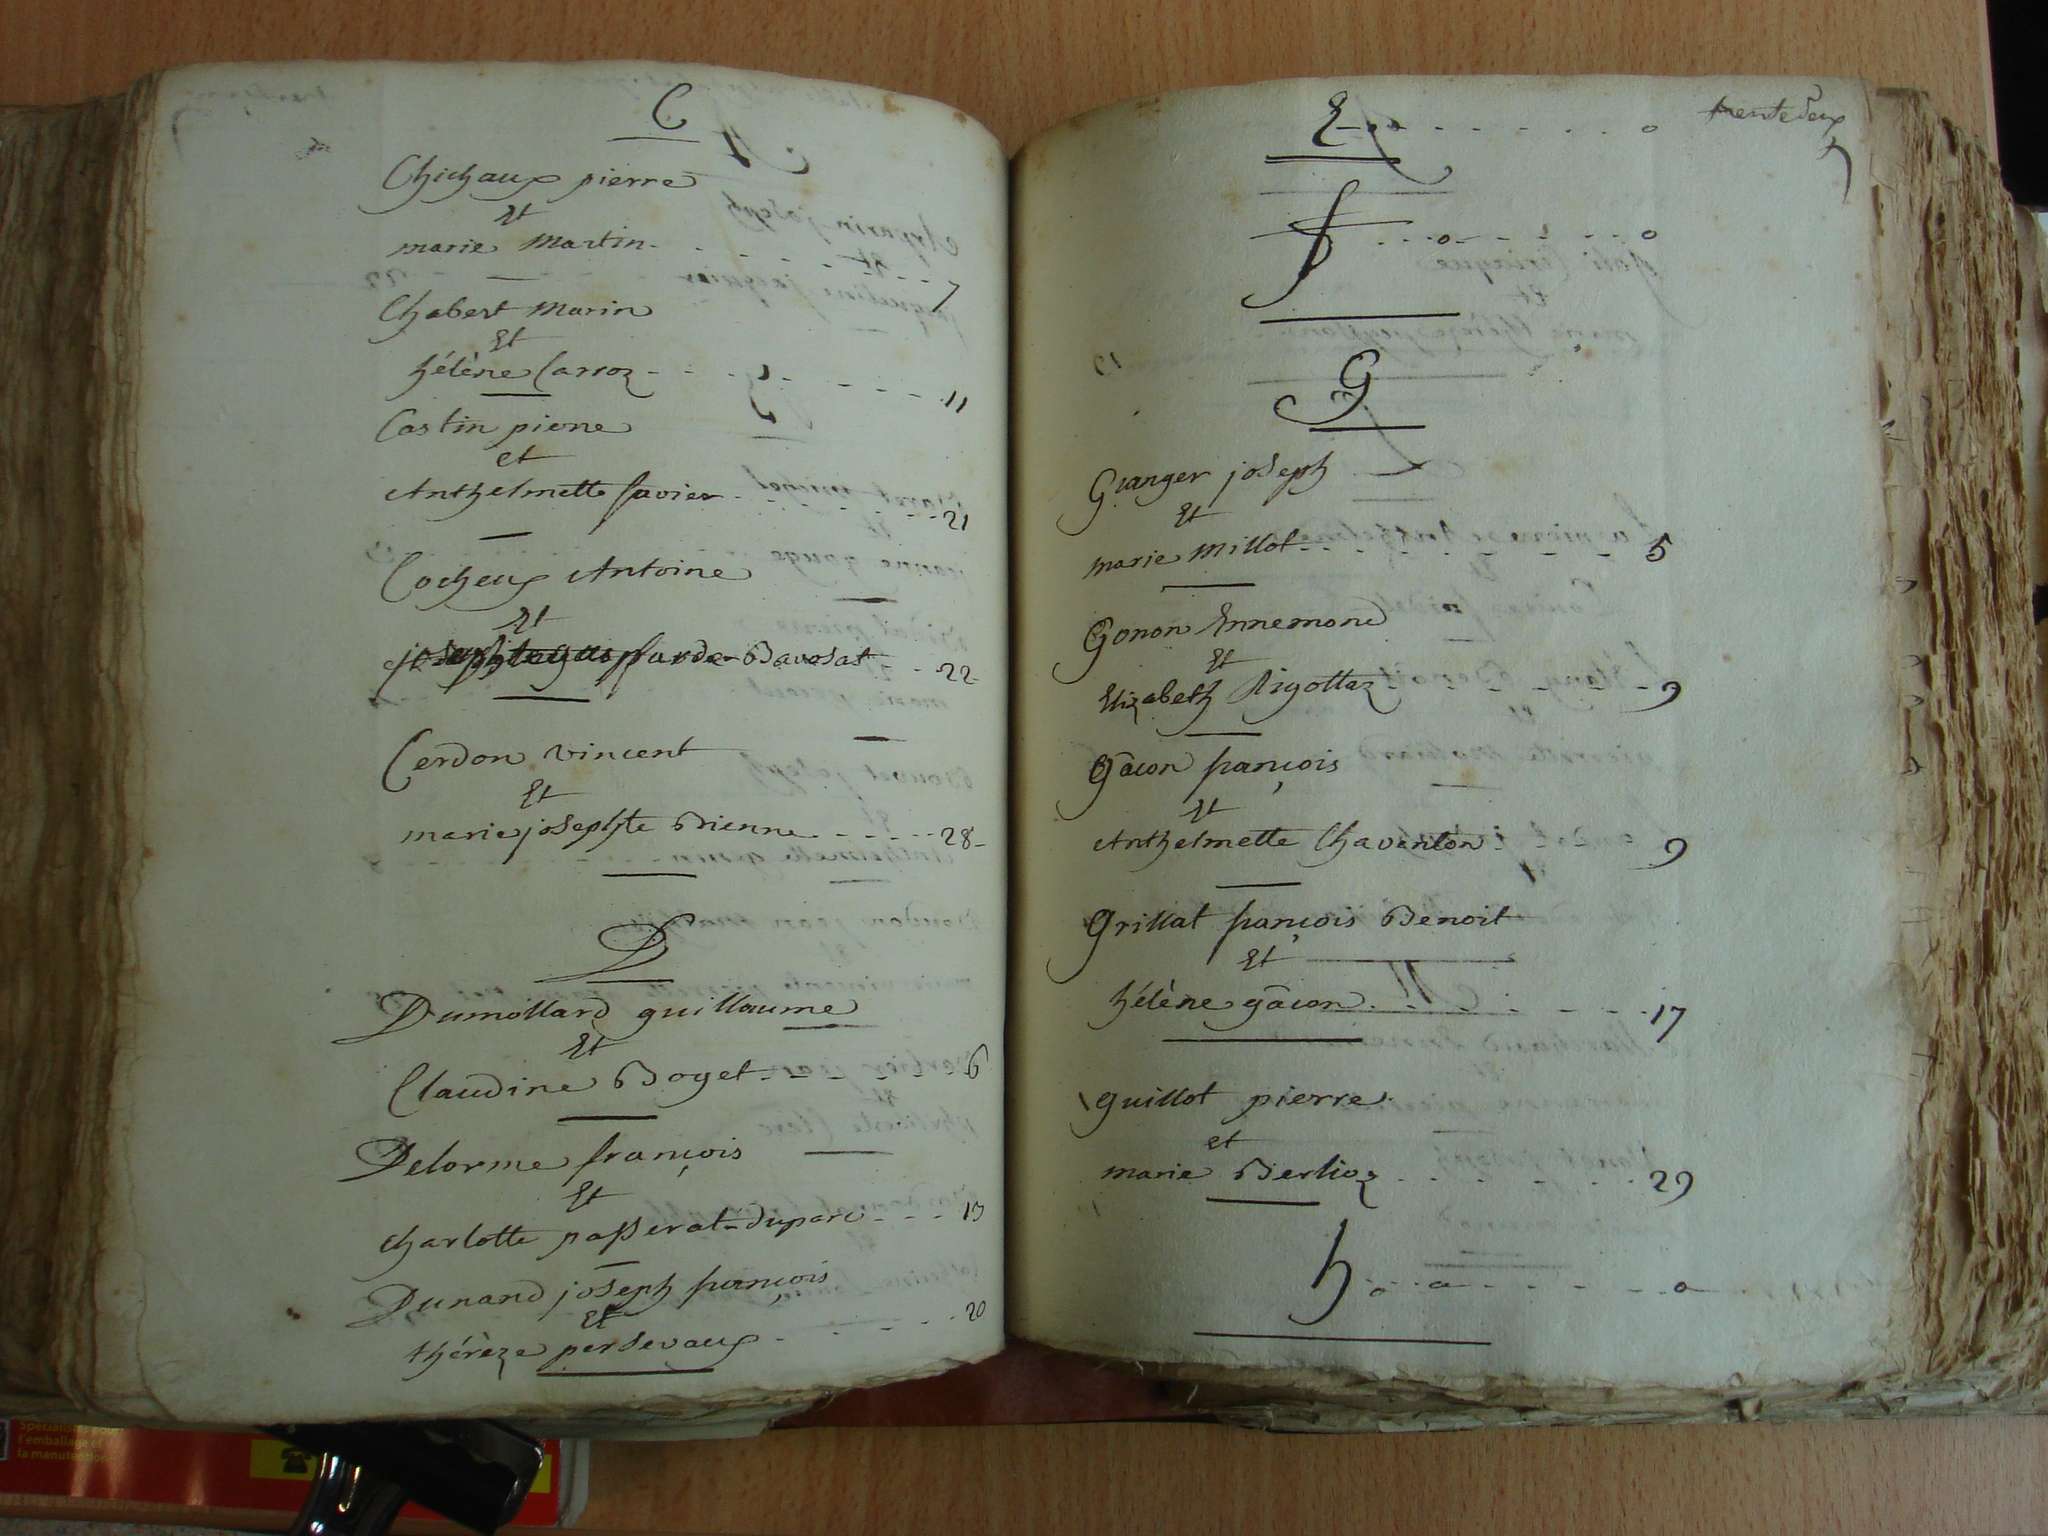 C
Chichaux pierre
Et
marie Martin - - - - - - 7
Chabert Marin
Et
hélène Carroz - - - - - - 11
Castin pierre
et
Anthelmette Savier - - - - - - 21
Cocheux Antoine
Et
Bavosat - - 22
Cerdon vincent
Et
marie josephte Brienne - - - - - 28
D
Dumollard guillaume
Et
Claudine Boget - - - - - 6
Delorme françois
Et
charlotte passerat duparc - - - 13
Dunand joseph françois
Et
thérèze persevaux - - - - - 20
trente deux
E - - - - - - o
f - - - o - - - - - o
G
Granger joseph
Et
marie Millot - - - - - - 5
Gonon Ennemond
Et
Elizabeth Rigottaz - - - - - 9
Gâcon françois
Et
Anthelmette Chaventon 9
Grillat françois Benoit
Et
hélène gâcon - - - - - - 17
guillot pierre
et
marie Berlioz - - - - - - 29
h - - - o - - - - - o
Spécialiste pour
l'emballage et
la manutention